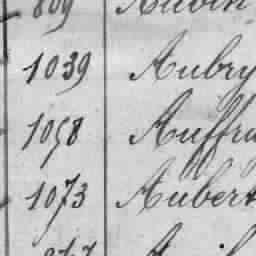 809 Aubin
1039 Aubry
1058 Auffra
1073 Aubert